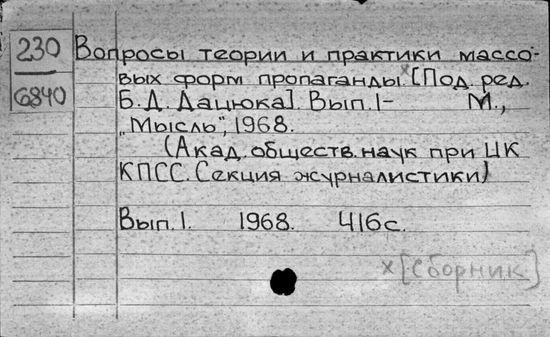 230
6840
Вопросы теории и практики массо-
вых форм пропаганды.× [Под. ред.
Б. Д. Дацюка]. Вып. 1- М.,
„Мысль", 1968.
(Акад. обществ. наук при ЦК
КПСС. Секция журналистики)
Вып. 1. 1968. 416 с.
× [Сборник]